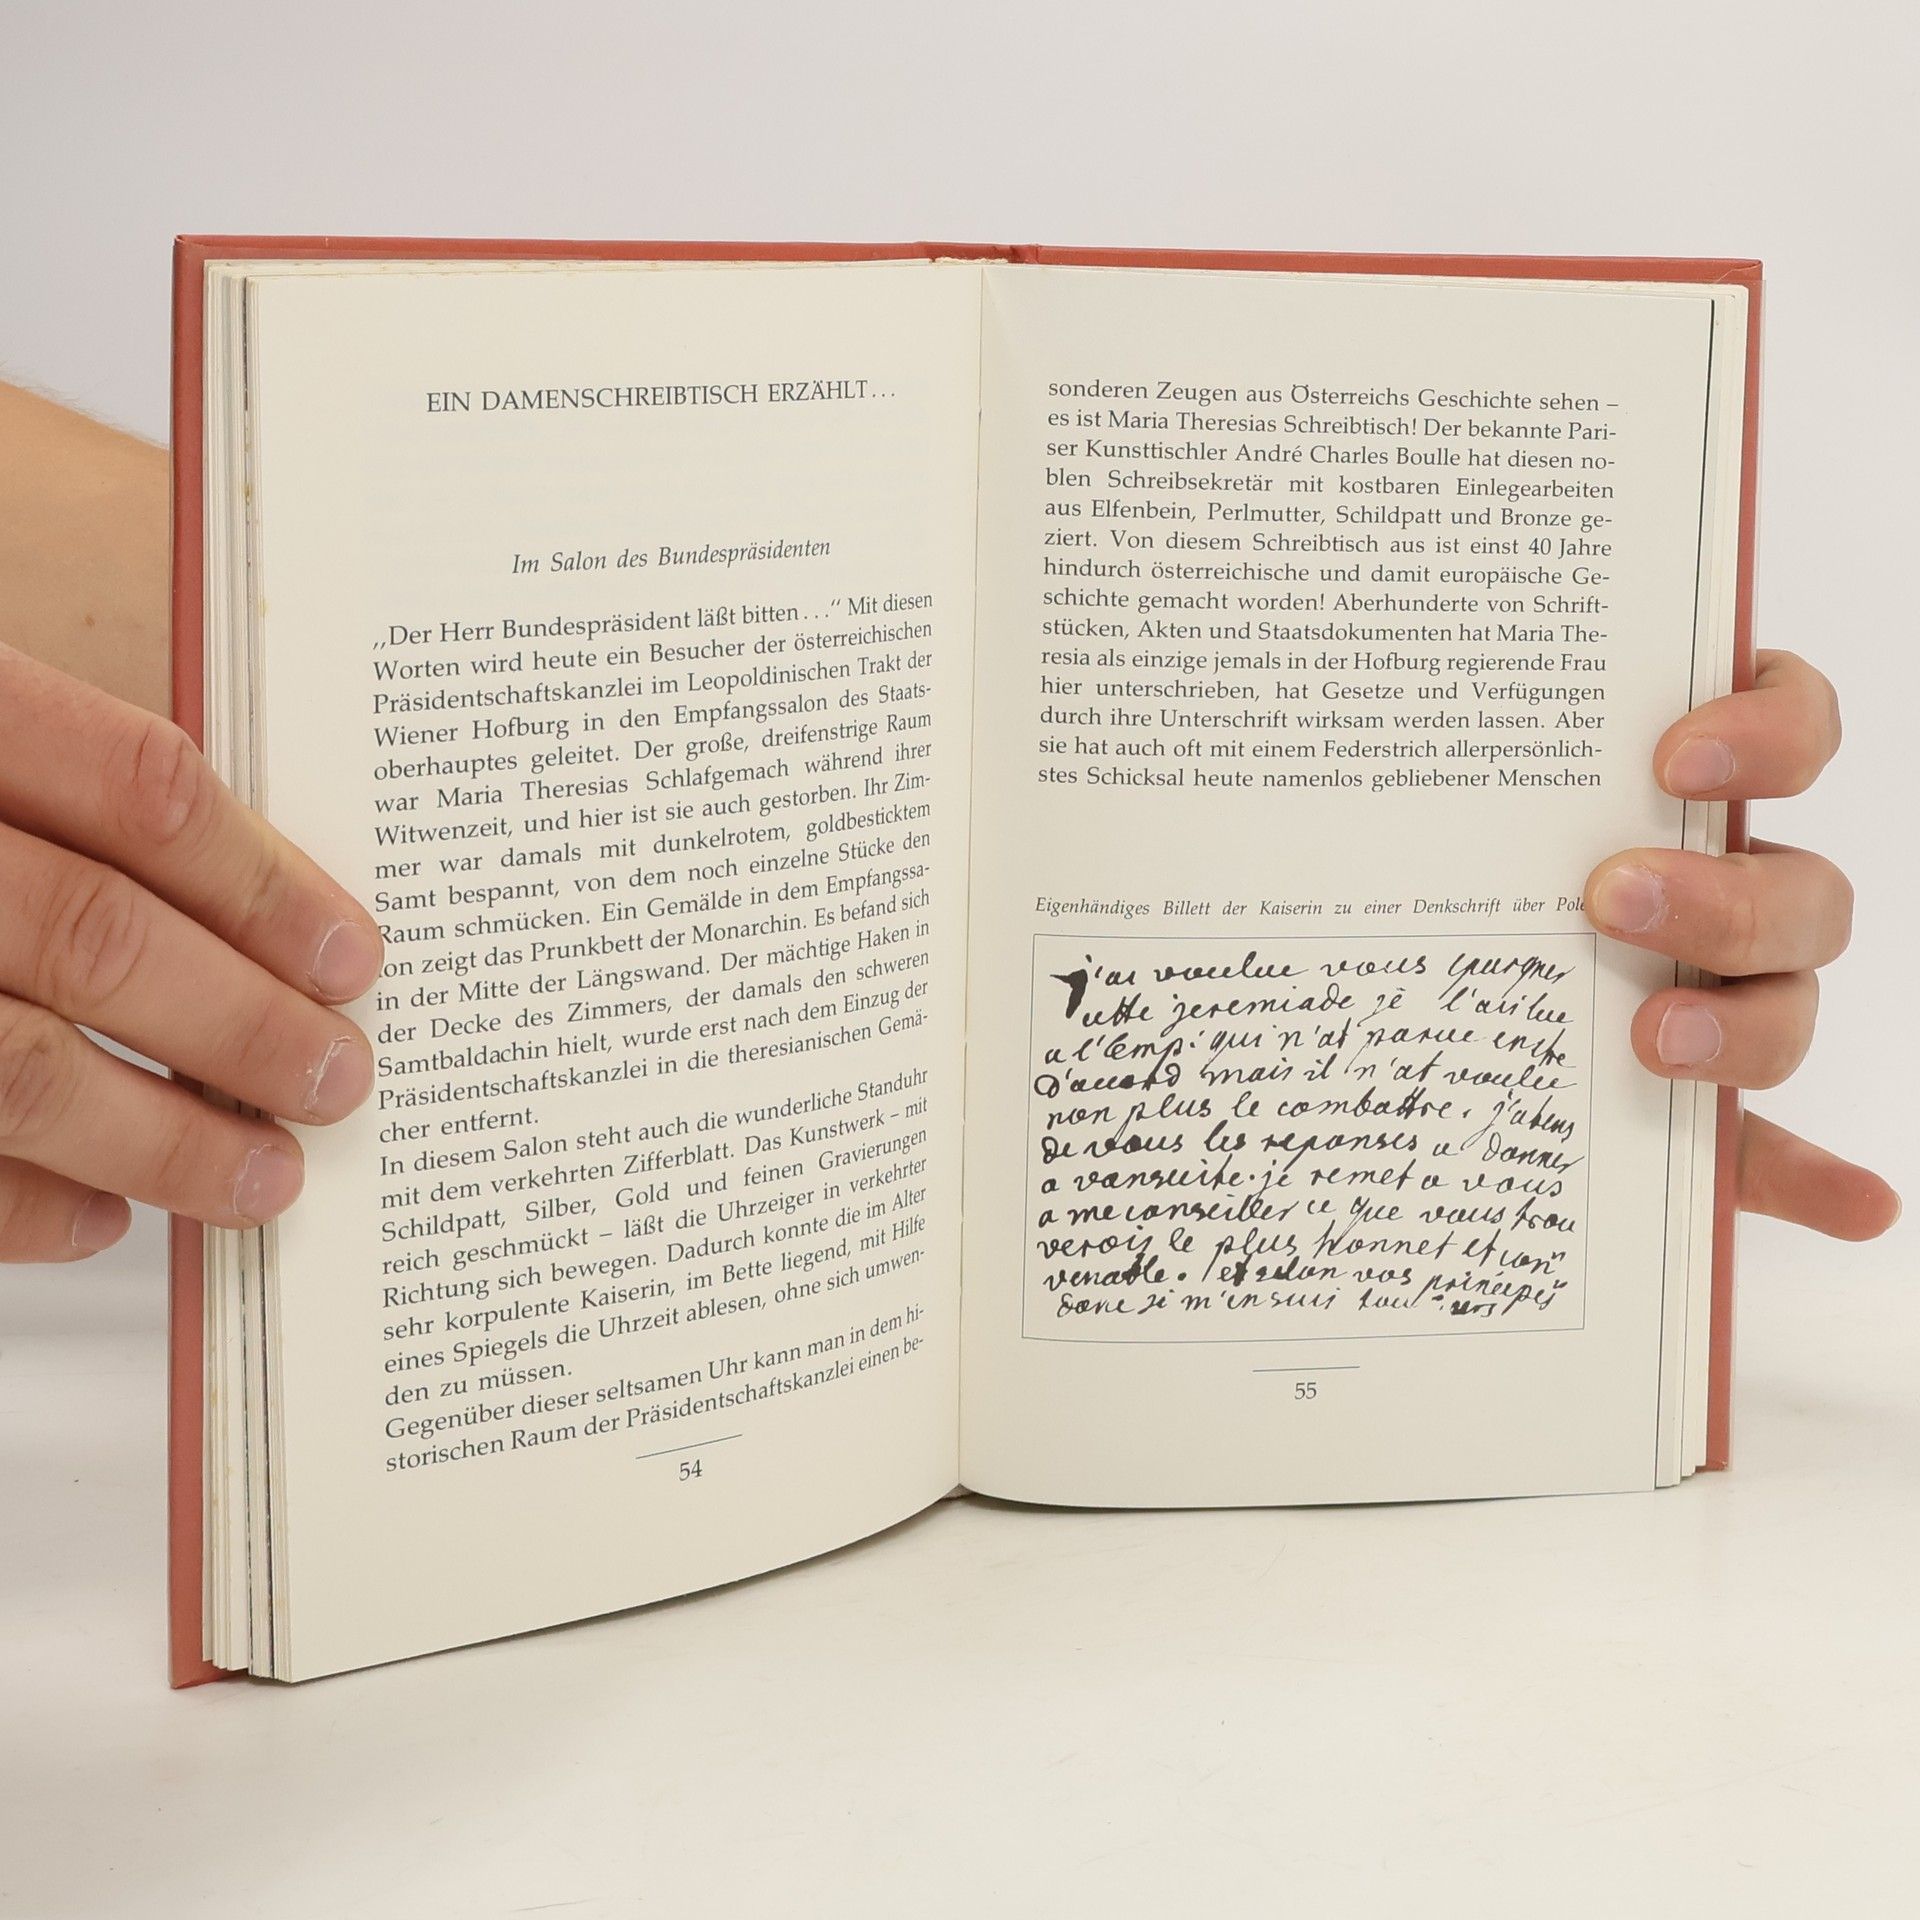 EIN DAMENSCHREIBTISCH ERZÄHLT...
Im Salon des Bundespräsidenten
„Der Herr Bundespräsident läßt bitten...“ Mit diesen
Worten wird heute ein Besucher der österreichischen
Präsidentschaftskanzlei im Leopoldinischen Trakt der
Wiener Hofburg in den Empfangssalon des Staats-
oberhauptes geleitet. Der große, dreifenstrige Raum
war Maria Theresias Schlafgemach während ihrer
Witwenzeit, und hier ist sie auch gestorben. Ihr Zim-
mer war damals mit dunkelrotem, goldbesticktem
Samt bespannt, von dem noch einzelne Stücke den
Raum schmücken. Ein Gemälde in dem Empfangssa-
lon zeigt das Prunkbett der Monarchin. Es befand sich
in der Mitte der Längswand. Der mächtige Haken in
der Decke des Zimmers, der damals den schweren
Samtbaldachin hielt, wurde erst nach dem Einzug der
Präsidentschaftskanzlei in die theresianischen Gemä-
cher entfernt.
In diesem Salon steht auch die wunderliche Standuhr
mit dem verkehrten Zifferblatt. Das Kunstwerk – mit
Schildpatt, Silber, Gold und feinen Gravierungen
reich geschmückt – läßt die Uhrzeiger in verkehrter
Richtung sich bewegen. Dadurch konnte die im Alter
sehr korpulente Kaiserin, im Bette liegend, mit Hilfe
eines Spiegels die Uhrzeit ablesen, ohne sich umwen-
den zu müssen.
Gegenüber dieser seltsamen Uhr kann man in dem hi-
storischen Raum der Präsidentschaftskanzlei einen be-
54
sonderen Zeugen aus Österreichs Geschichte sehen –
es ist Maria Theresias Schreibtisch! Der bekannte Pari-
ser Kunsttischler André Charles Boulle hat diesen no-
blen Schreibsekretär mit kostbaren Einlegearbeiten
aus Elfenbein, Perlmutter, Schildpatt und Bronze ge-
ziert. Von diesem Schreibtisch aus ist einst 40 Jahre
hindurch österreichische und damit europäische Ge-
schichte gemacht worden! Aberhunderte von Schrift-
stücken, Akten und Staatsdokumenten hat Maria The-
resia als einzige jemals in der Hofburg regierende Frau
hier unterschrieben, hat Gesetze und Verfügungen
durch ihre Unterschrift wirksam werden lassen. Aber
sie hat auch oft mit einem Federstrich allerpersönlich-
stes Schicksal heute namenlos gebliebener Menschen
Eigenhändiges Billett der Kaiserin zu einer Denkschrift über Pole
j'ai voulue vous epargner
cette jeremiade je l'ai lue
a l'Emp: qui n'at parue
d'acord mais il n'at voulue
non plus le combattre. j'atens
de vous les reponses a donner
a vansuite. je remet a vous
a me conseiller ce que vous trou
verois le plus honnet et con
venable. et selon vos principes
donc je m'en suis
55